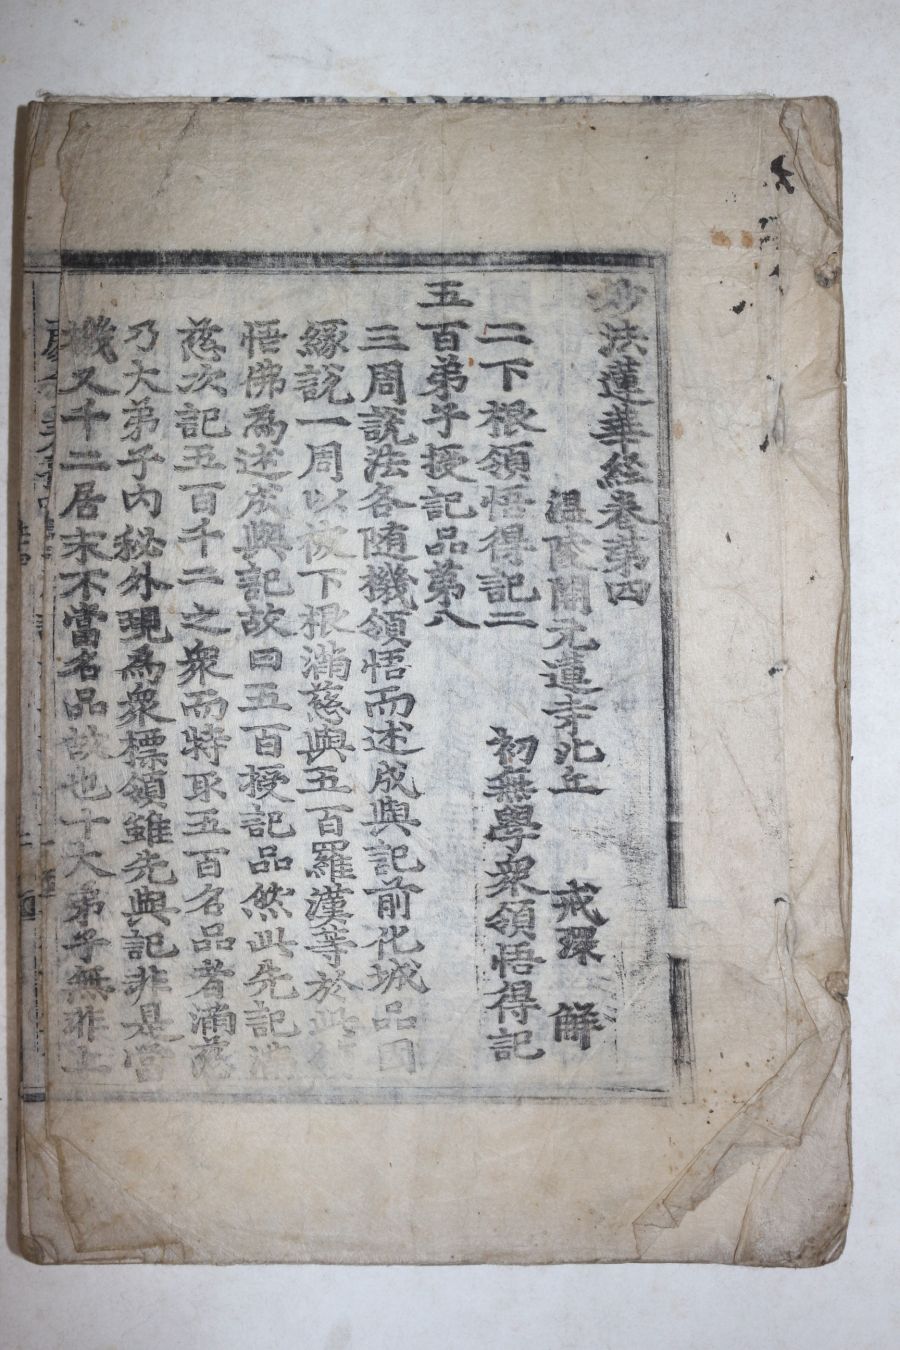 妙法蓮華經卷第四
溫陵開元蓮寺比丘 戒環 解
二下根領悟得記二 初無學衆領悟得記
五百弟子授記品第八
三周說法各随機領悟而述成與記前化城品因
緣說一周以被下根滿慈與五百羅漢等於此
悟佛為述成與記故曰五百授記品然此先記滿
慈次記五百千二之衆而特取五百名品者滿慈
乃大弟子內秘外現為衆標領雖先與記非是當
機又千二居末不當名品故也十大弟子無非上